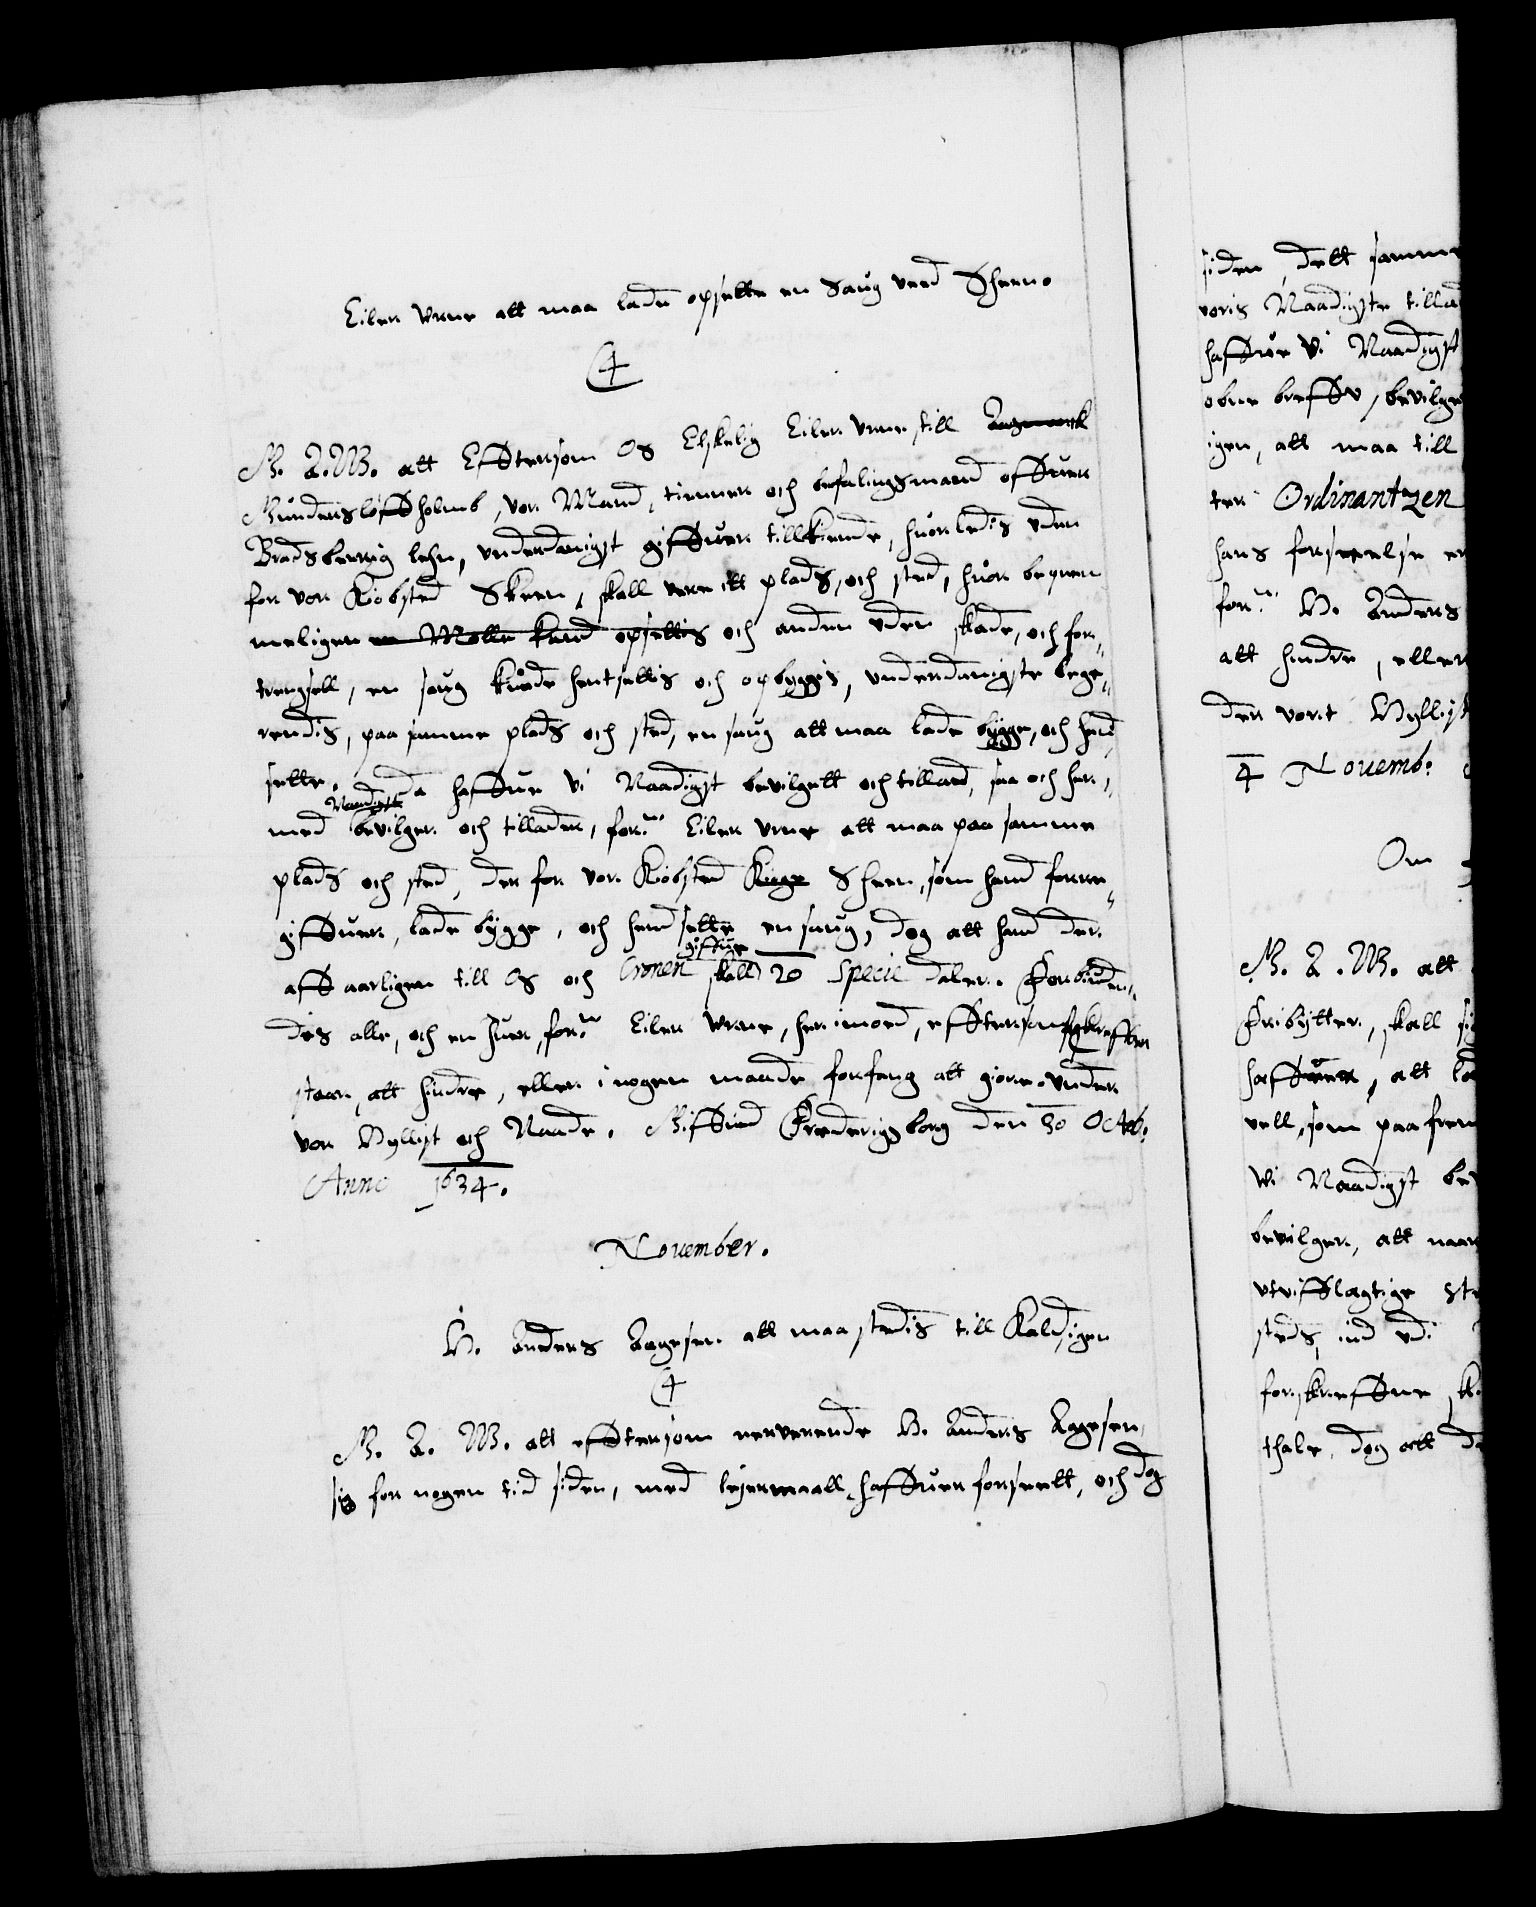 Eiler Urne att maa lade opsette en Saug ved Scheen.
C4
G. A. W. att Effttersom Os Elskelig Eiler Urne till Aagmarck
Gundersløffholmb, vor Mand, tienner och befalingsmand offuer
Bradsberrig lehn, underdanigst giffuer tillkiende, huorledis uden
for vor Kiøbsted Skeen, skall vere itt plads, och sted, huor beqvem
meligen en Mølle kand opsettis och anden uden skade, och for„
trengsell, en saug kunde hensettis och opbyggis, underdanigste bege„
rendis, paa samme plads och sted, en saug att maa lade bygge, och hend„
sette, Da haffue Vi Naadigst bevilgett och tilladt, saa och her„
Naadigst
med bevilger och tillader, forne Eiler Urne att maa paa samme
plads och sted, der for vor Kiøbsted Kiøge Scheen, som hand forre„
giffuer, lade bygge, och hendsette en saug, dog att hand der
giffue
aff aarligen till Os och Cronen skall 20 Specie daler. Forbiuden„
dis alle, och en huer, forne Eiler Urne, her imod, efftersom forskreffuen
staar, att hindre, eller i nogen maade forfang att giøre. Under
vor Hyllist och Naade. Giffuid Frederigsborg den 30 Octob:
Anno 1634.
November.
H. Anders Aagesen att maa stedis till Kald igen
C4
G. A. W. att efftersom nerverende H. Anders Aagesen
sig for nogen tid siden, med leyermaall haffuer forseett, och dog
siden, dett samme
voris Naadigste tillad
haffue Vi Naadigst
obne breffv, bevilge
igen, att maa till
ter Ordinantzen
hans forseelse er
forne H. Anders
att hindre, eller
der vort Hyllist
4 Novemb:
Om
G. A. W. att
Fribytter, skall si
haffuer, att la
vell, som paa frem
Wi Naadigst be
bevilger, att naar
utvifflagtige ste
steds, ind udi
forskreffne sk
thale, dog att de